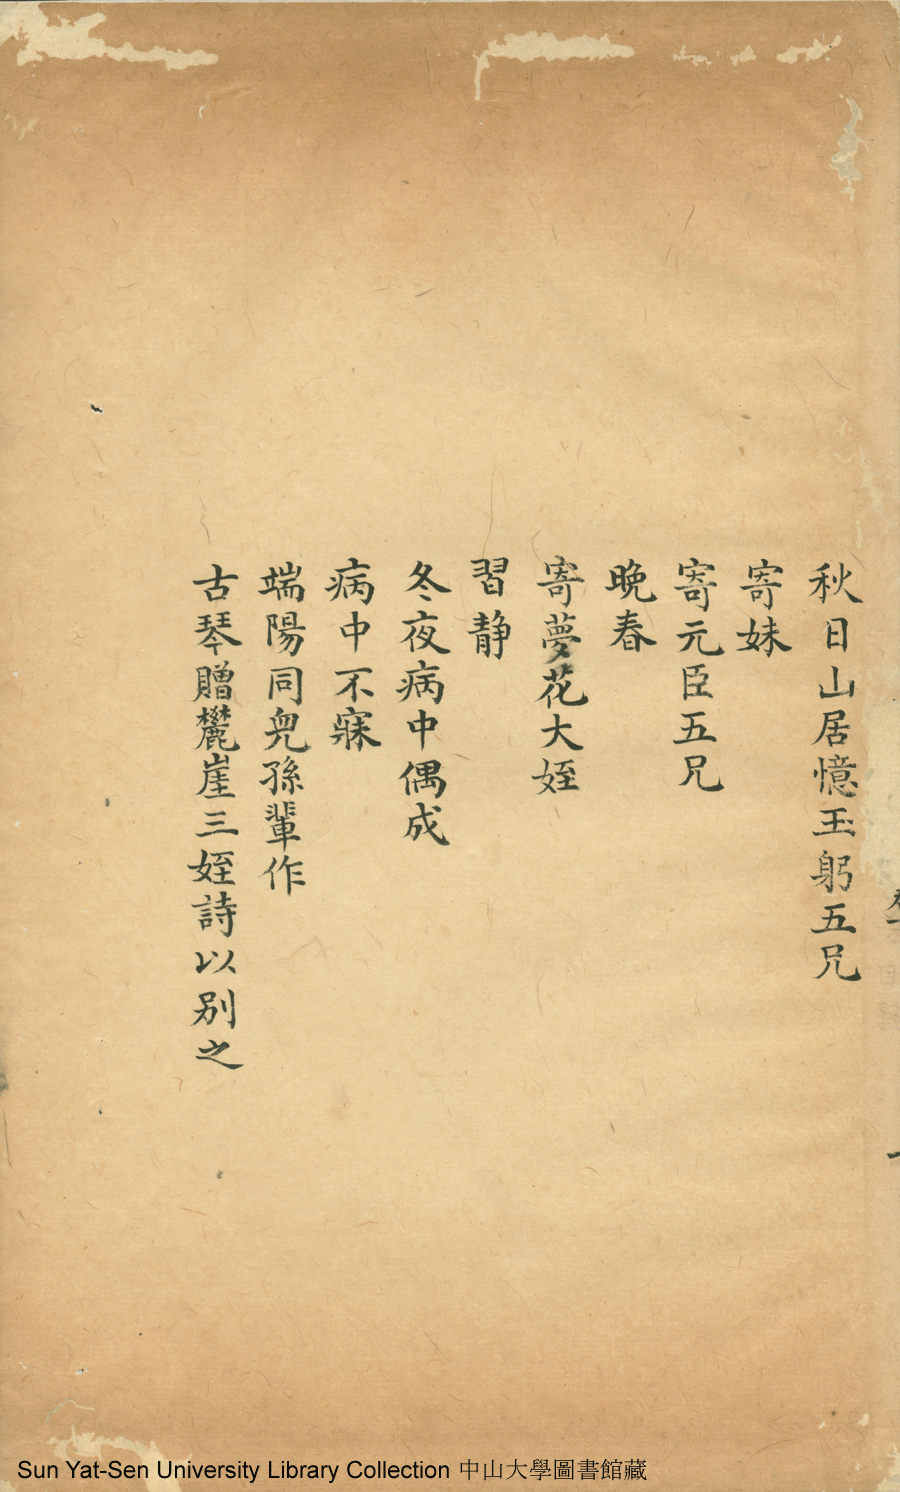 秋日山居憶玉躬五兄
寄妹
寄元臣五兄
晚春
寄夢花大姪
習静
冬夜病中偶成
病中不寐
端陽同兒孫輩作
古琴贈麓崖三姪詩以别之
Sun Yat-Sen University Library Collection 中山大學圖書館藏